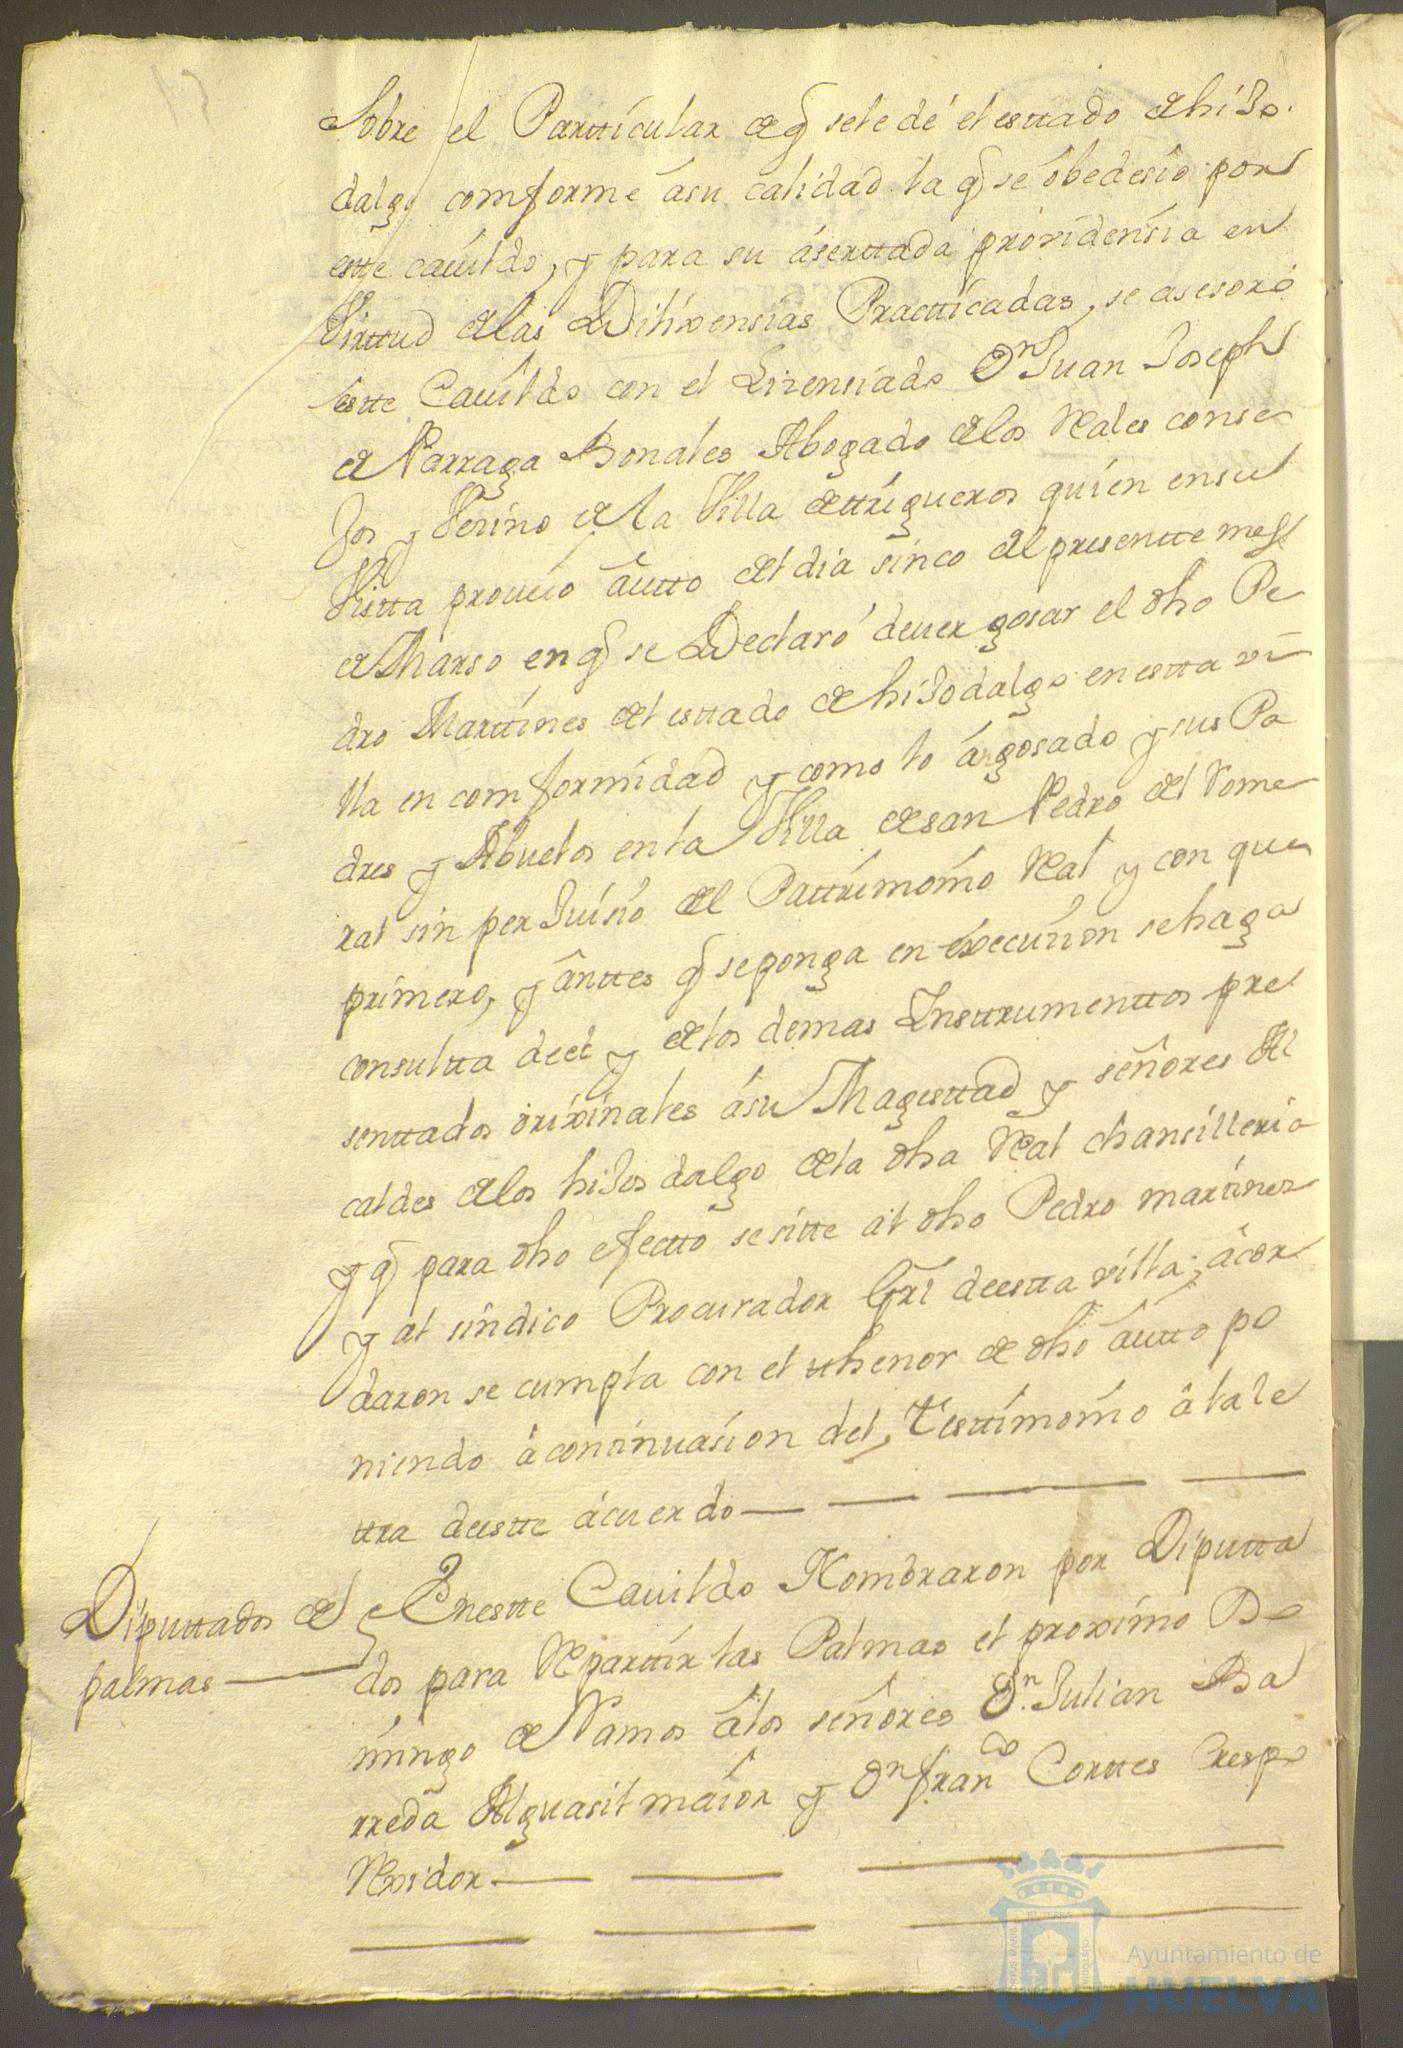 Sobre el Partticular de q̃ sele dé el esttado de hiJo
dalgo comforme ásu calidad la q̃ se ôbedesiô por
estte cauildo, y para su áserttada providensia en
Virttud delas Dilixensias Practticadas, se asesoró
estte Cauildo con el Lizensiado Dn Juan Joseph
de Parraga Bonales Abogado delos Rales conse
Jos y Vezino de la Villa dettrigueros quien ensu
Vistta proueio âutto del dia sinco del presentte mes
de Marso en q̃ se Declaró deuer gosar el dho Pe
dro Marttines del esttado de hiJodalgo enestta vi
lla en comformidad y como lo á gosado y sus Pa
dres y Abuelos enla Villa desan Pedro del Rome
ral sin perJuisio del Pattrimonio Real y con que
primero, y ânttes q̃ seponga en execuzion sehaga
consultta deel y delos demas Insttrumenttos pre
senttados orixinales ásu Magesttad y señores Al
caldes delos hiJos dalgo dela dha Real chansilleria
y q̃ para dho efectto se sitte al dho Pedro martines
y al sindico Procurador Grl deestta villa; âcor
daron se cumpla con el thenor de dho âutto po
niendo âcontinuasion del, Testtimonio âlale
ttra deestte ácuerdo
Diputtados de
palmas
Enestte Cauildo Nombraron por Diputta
dos para Reparttir las Palmas el proximo Do
mingo de Ramos âlos señores Dn. Julian Ba
rreda Alguasil maior y Dn franco Corttes Crespo
Rexidor
Ayuntamiento de
HUELVA